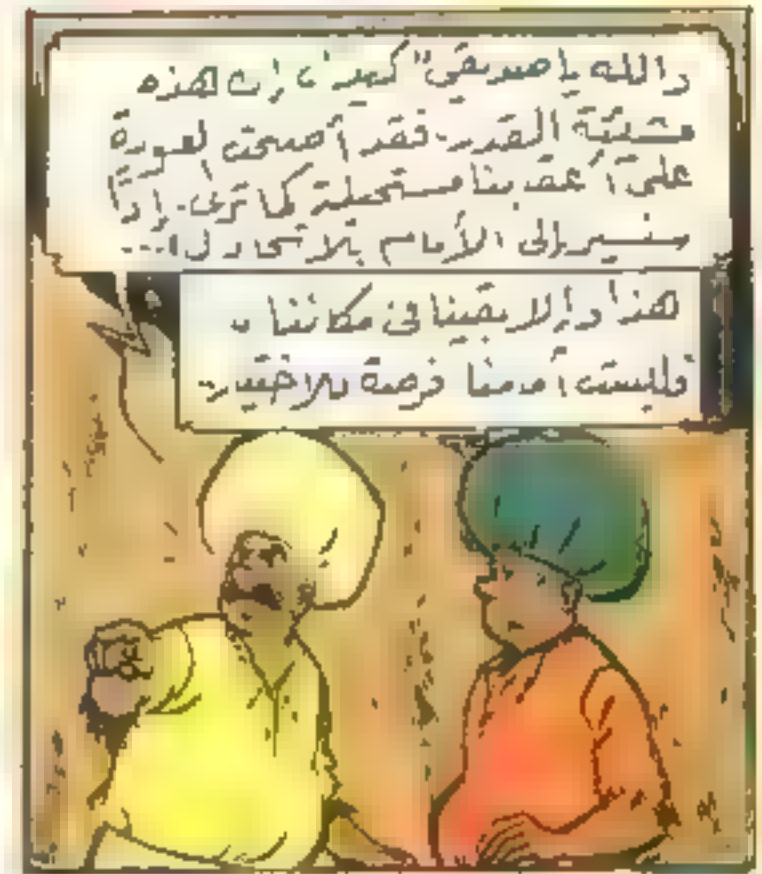 والله يا صديقي "كهرمان" إن هذه
مشيئة القدر. فقد أصبحت العودة
على أعقابنا مستحيلة كما ترى. إذًا
سنسير إلى الأمام بلا تخاذل ...
هذا وإلا بقينا في مكاننا ..
فليست أمامنا فرصة للاختيار..